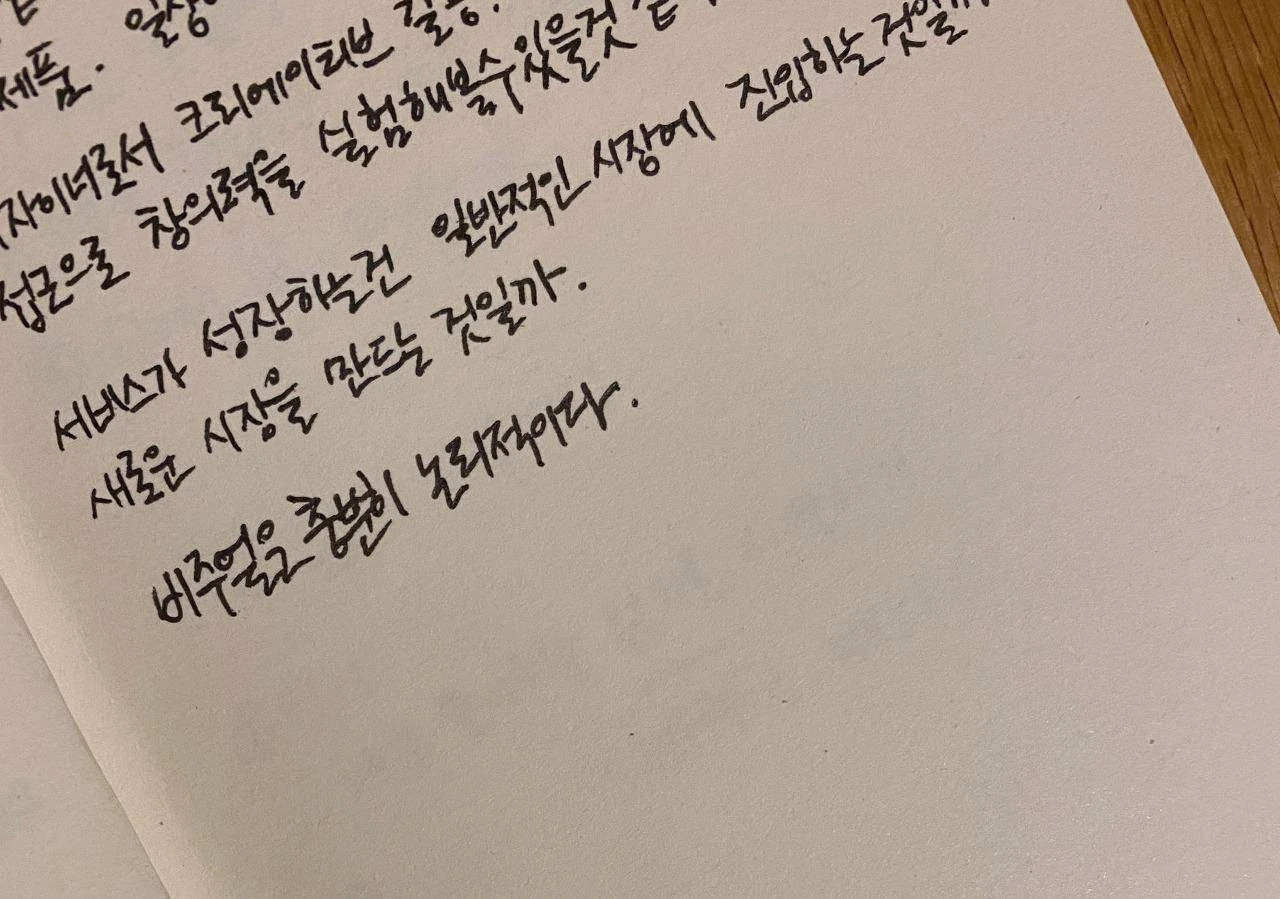 제품. 일상
자이너로서 크리에이티브 갈증.
접근으로 창의력을 실험해볼수있을것
서비스가 성장하는건 일반적인 시장에 진입하는 것일까
새로운 시장을 만드는 것일까.
비주얼은 충분히 논리적이다.